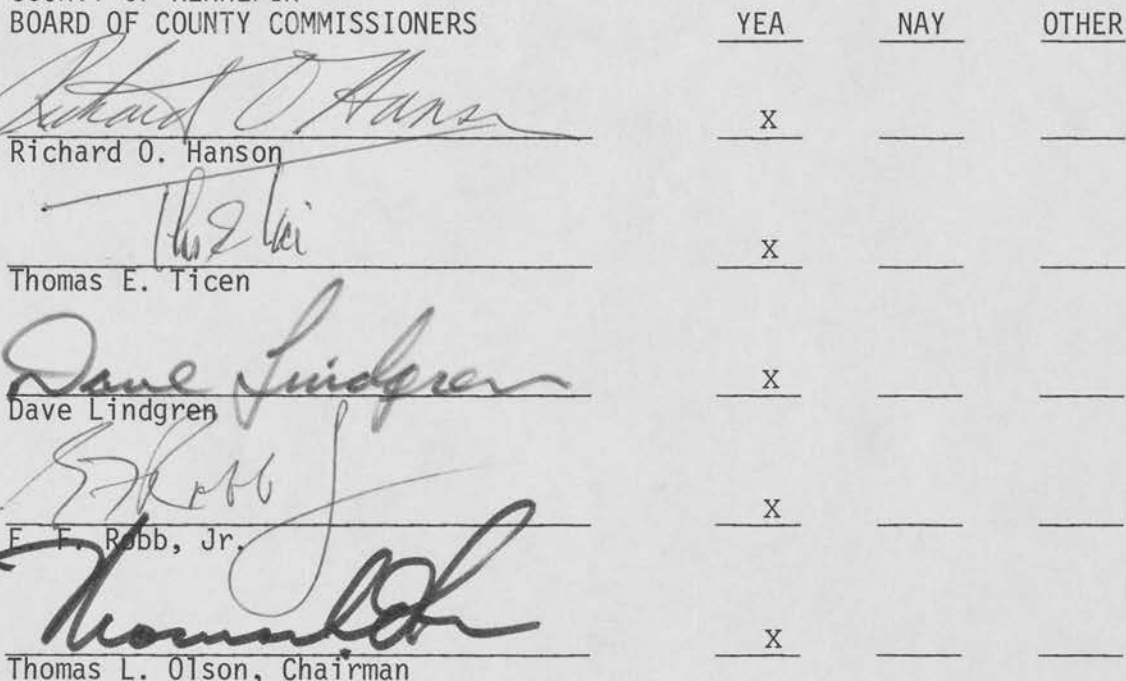 BOARD OF COUNTY COMMISSIONERS YEA NAY OTHER
Richard O Hanson X
Richard O. Hanson
X
Thomas E. Ticen
Dave Lindgren X
Dave Lindgren
E F Robb X
E. F. Robb, Jr.
X
Thomas L. Olson, Chairman